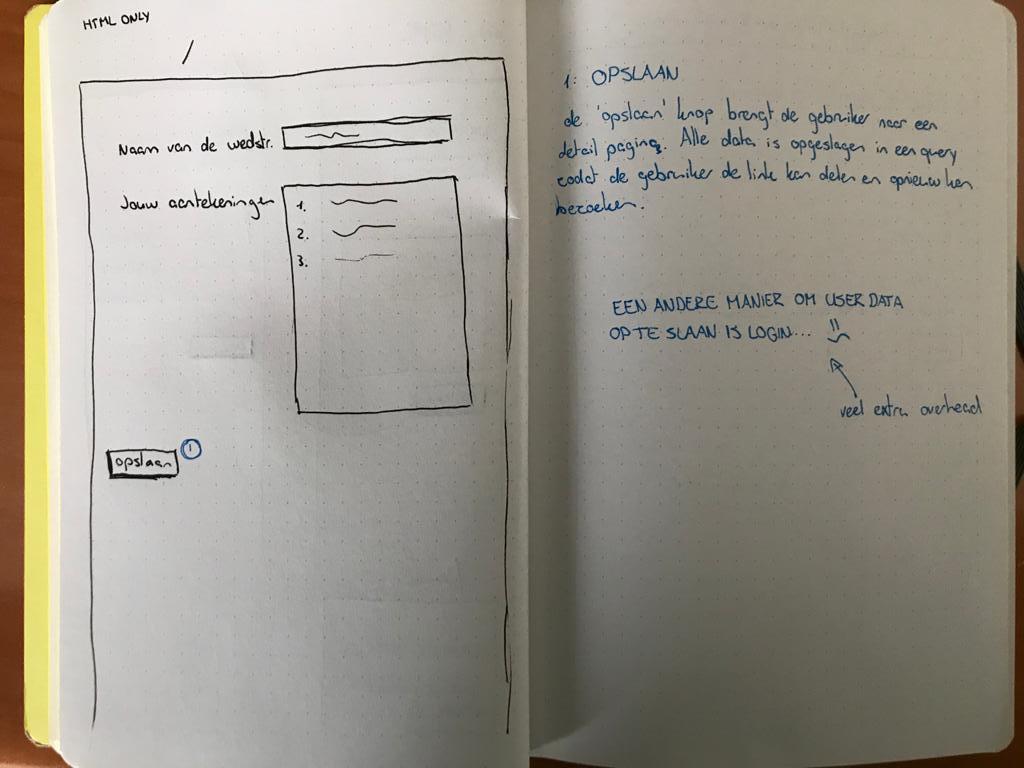 HTML ONLY
/
Naam van de wedstr.
Jouw aantekeningen
1.
2.
3.
opslaan
1
1: OPSLAAN
de 'opslaan' knop brengt de gebruiker naar een
detail pagina. Alle data is opgeslagen in een query
zodat de gebruiker de link kan delen en opnieuw kan
bezoeken.
EEN ANDERE MANIER OM USER DATA
OP TE SLAAN IS LOGIN...
veel extra overhead